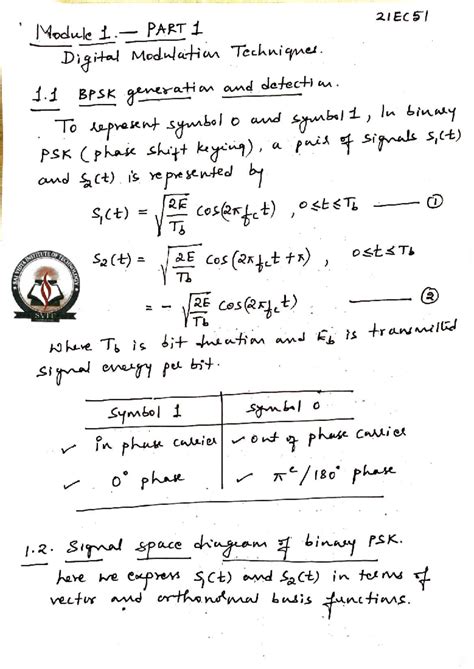 21EC51
Module 1. — PART 1
Digital Modulation Techniques.
1.1 BPSK generation and detection.
To represent symbol 0 and symbol 1, In binary
PSK (phase shift keying), a pair of signals S₁(t)
and S₂(t) is represented by
S₁(t) = √(2E/Tb) cos(2πfct) , 0≤t≤Tb — ①
S₂(t) = √(2E/Tb) cos(2πfct + π) , 0≤t≤Tb
= - √(2E/Tb) cos(2πfct) — ②
where Tb is bit duration and Eb is transmitted
signal energy per bit.
Symbol 1 | Symbol 0
✓ in phase carrier | ✓ out of phase carrier
✓ 0° phase | ✓ πᶜ/180° phase
1.2. Signal space diagram of binary PSK.
here we express S₁(t) and S₂(t) in terms of
vector and orthonormal basis functions.
SVIT